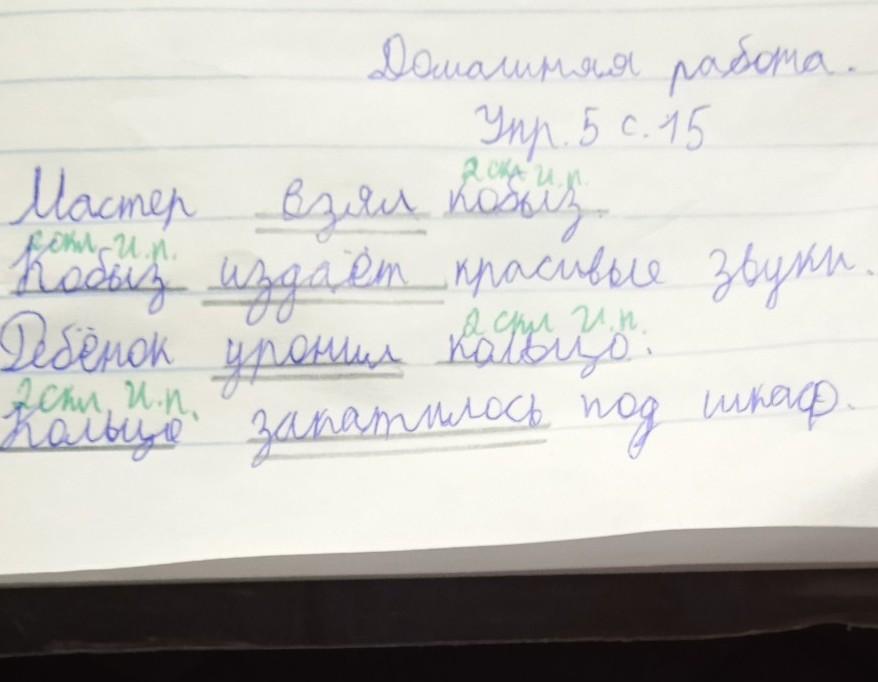 Домашняя работа.
Упр. 5 с. 15
2 скл И.п.
Мастер взял кобыз.
2 скл И.п.
Кобыз издаёт красивые звуки.
2 скл И.п.
Ребёнок уронил кольцо.
2 скл И.п.
Кольцо закатилось под шкаф.